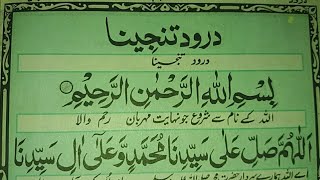 درود تنجینا
درود تنجینا
بِسْمِ اللّٰهِ الرَّحْمٰنِ الرَّحِيْمِ
اللہ کے نام سے شروع جو نہایت مہربان رحم والا
اَللّٰهُمَّ صَلِّ عَلٰى سَيِّدِنَا مُحَمَّدٍ وَّعَلٰٓى اٰلِ سَيِّدِنَا